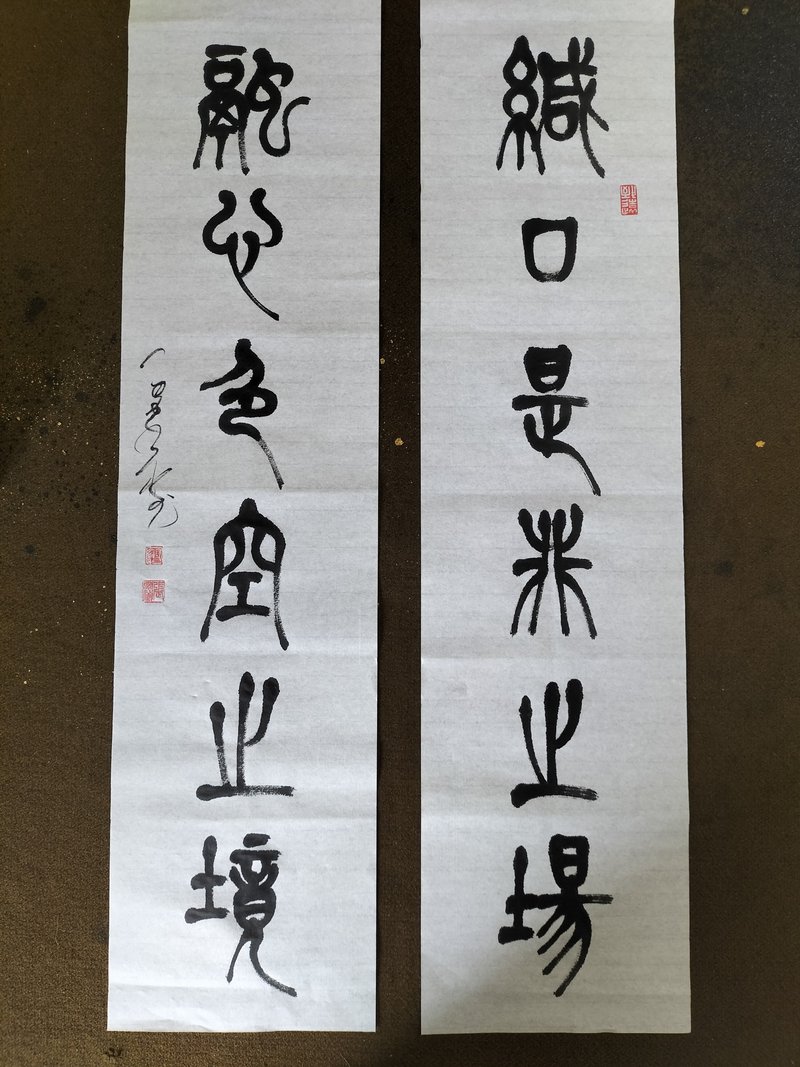 緘口是非之場
融心色空之境